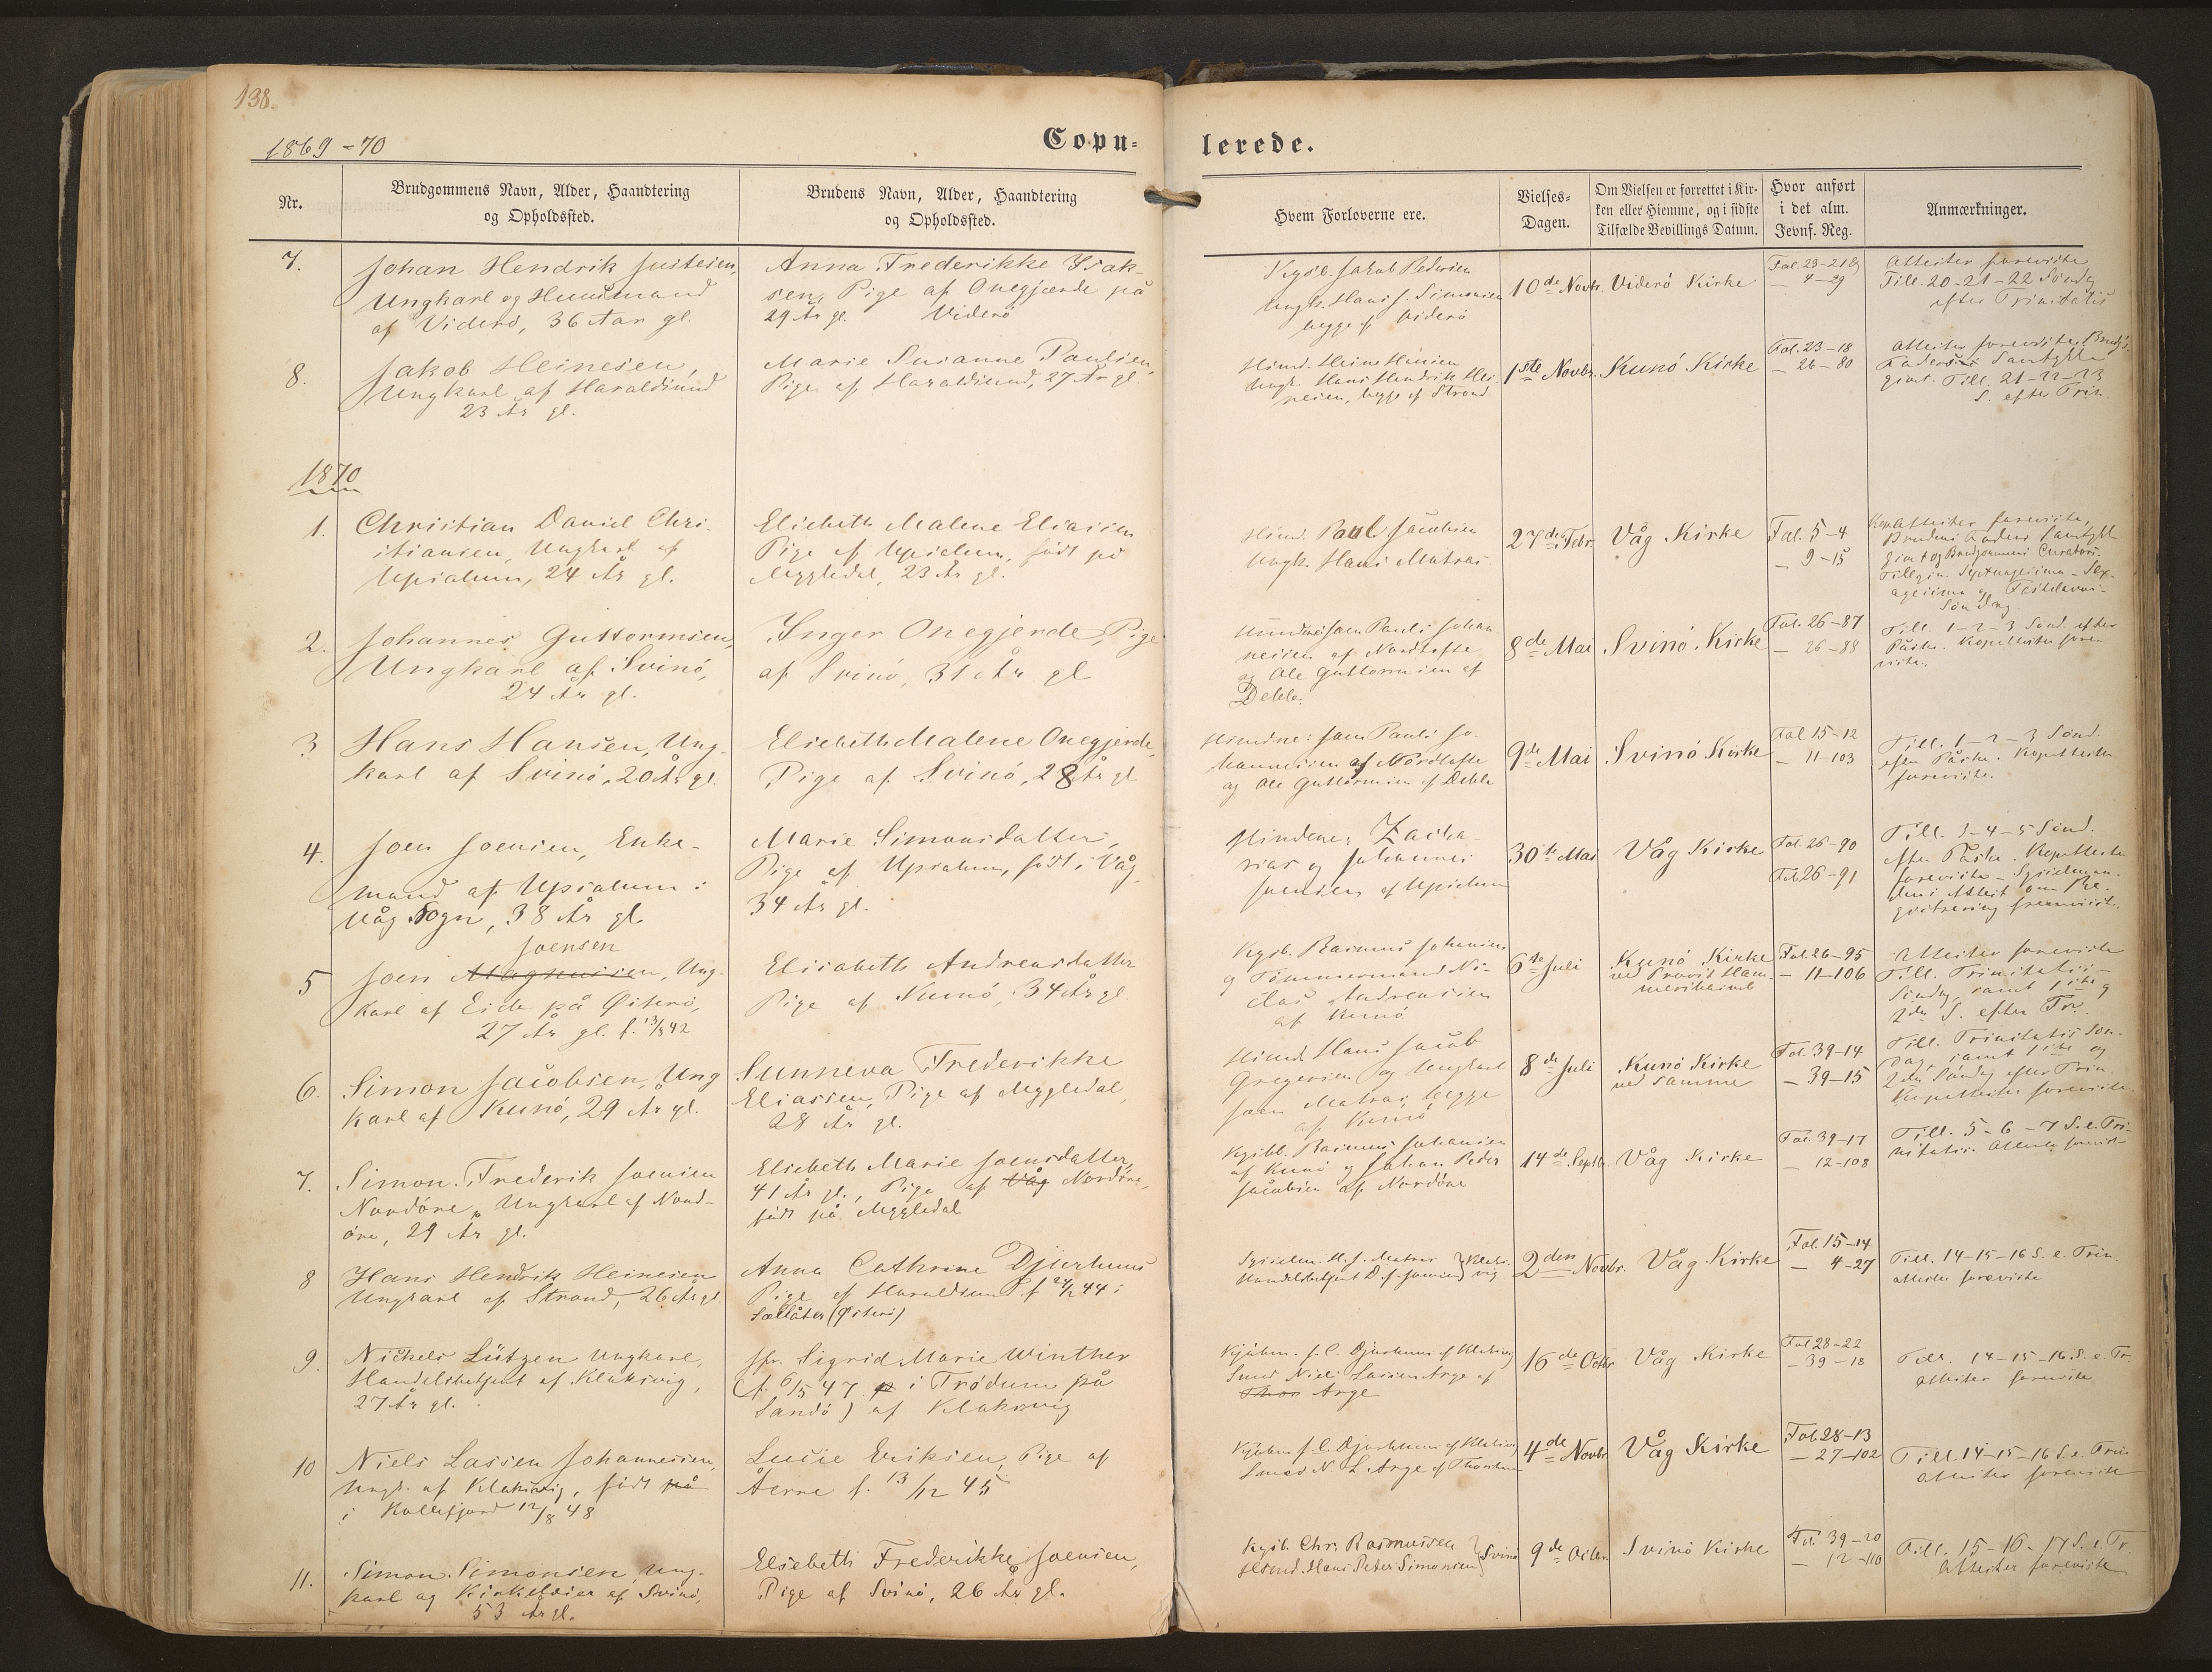 138.
1869-70
Copu=
lerede.
Nr.
Brudgommens Navn, Alder, Haandtering
og Opholdssted.
Brudens Navn, Alder, Haandtering
og Opholdssted.
Hvem Forloverne ere.
Vielses=
Dagen.
Om Vielsen er forrettet i Kir-
ken eller Hiemme, og i sidste
Tilfælde Bevillings Datum.
Hvor anført
i det alm.
Jevnf. Reg.
Anmærkninger.
7.
Johan Hendrik Justesen,
Ungkarl og Huusmand
af Viderö, 36 Aar gl.
Anna Frederikke Isak-
sen, Pige af Onegjærde på
29 År gl. Viderö
Kgsb. Jakob Pedersen
Ungk. Hans J. Simonsen
begge af Viderö
10de Novbr.
Viderö Kirke
Fol. 23-218
— 4-29
Attester foreviste
Till. 20-21-22 Söndg
efter Trinitatis
8.
Jakob Heinesen,
Ungkarl af Haraldsund
23 År gl.
Marie Susanne Paulsen,
Pige af Haraldsund, 27 År gl.
Hsmd. Heine Hansen
Ungk. Hans Hendrik Hei-
nesen, begge af Strond
1ste Novbr.
Kunö Kirke
Fol. 23-18
— 26-80
Attester foreviste, Brudg.s
Faders Samtykke
givet. Till. 21-22-23
S. efter Trin.
1870
1.
Christian Daniel Chri-
stiansen, Ungkarl af
Upsalum, 24 År gl.
Elsebeth Malene Eliasen
Pige af Upsalum, født på
Myggledal, 23 År gl.
Hsmd. Paul Jacobsen
Ungk. Hans Matras
27de Febr.
Våg Kirke
Fol. 5-4
— 9-15
Kopattester foreviste,
Brudens Faders Samtykke
givet og Brudgommens Curators.
Tillysn. Septuagesima - Sex-
agesima og Fastelavns-
Söndag
2.
Johannes Guttormsen,
Ungkarl af Svinö,
24 År gl.
Inger Onegjerde, Pige
af Svinö, 31 År gl
Joen Pauli Johan
nesen af Nordtofte
og Ole Guttormsen af
Deble.
8de Mai
Svinö Kirke
Fol. 26-87
— 26-88
Till. 1-2-3 Sönd. efter
Påske. Kopattester fore-
viste.
3
Hans Hansen, Ung-
karl af Svinö, 20 År gl.
Elsebeth Malene Onegjerde,
Pige af Svinö, 28 År gl
Joen Pauli Jo-
hannesen af Nordtofte
og Ole Guttormsen af Deble
9de Mai
Svinö Kirke
Fol 15-12
— 11-103
Till. 1-2-3 Sönd.
efter Påske. Kopattester
foreviste.
4.
Joen Joensen, Enke-
mand af Upsalum i
Våg Sogn, 38 År gl.
Marie Simonsdatter,
Pige af Upsalum, født i Våg,
34 År gl.
Zacha-
rias og Johannes
Joensen af Upsalum
30te Mai
Våg Kirke
Fol. 26-90
Fol. 26-91
Till. 3-4-5 Sönd.
efter Påske. Kopattester
foreviste - Sysselman-
dens Attest om Re-
gistrering fremvist.
5
Joensen
Joen Magnussen, Ung-
karl af Eide på Österö,
27 År gl. f. 13/8 42
Elisabeth Andreasdatter
Pige af Kunö, 34 År gl.
Kgsb. Rasmus Johansen
og Tömmermand Ni-
clas Andreasen
af Kunö
6te Juli
Kunö Kirke
ved Provst Ham-
mershaimb
Fol. 26-95
— 11-106
Attester foreviste
Till. Trinitatis-
Söndag, samt 1ste og
2den S. efter Tr.
6.
Simon Jacobsen, Ung
karl af Kunö, 29 År gl.
Sunneva Frederikke
Eliassen, Pige af Myggledal,
28 År gl.
Hsmd. Hans Jacob
Gregersen og Ungkarl
Joen Matras, begge
af Kunö
8de Juli
Kunö Kirke
ved samme
Fol. 39-14
— 39-15
Till. Trinitatis Sön-
dag, samt 1ste og
2den Söndag efter Trin.
Kopattester foreviste.
7.
Simon Frederik Joensen
Nordöre, Ungkarl af Nord-
öre, 29 År gl.
Elsebeth Marie Joensdatter,
41 År gl., Pige af Våg Nordöre,
født på Myggledal
Kgsbb. Rasmus Johansen
af Kunö og Johan Peder
Jacobsen af Nordöre
14de Septbr.
Våg Kirke
Fol. 39-17
— 12-108
Till. 5-6-7 S. e. Tri-
nitatis. Attester forevist
8
Hans Hendrik Heinesen
Ungkarl af Strond, 26 År gl
Anna Cathrine Djurhuus
Pige af Haraldsund f 24/2 44 i
Sellåter (Österö)
Sysselm. H. J. Matras
Handelsbetjent D. J. Joensen
Klaksvig
2den Novbr.
Våg Kirke
Fol. 15-14
— 4-27
Till. 14-15-16 S. e. Trin.
Attester foreviste
9.
Nickels Lützen Ungkarl,
Handelsbetjent af Klaksvig,
27 År gl.
Jfr. Sigrid Marie Winther
(f. 6/5 47 i Tródum på
Sandö) af Klaksvig
Kjöbm. J. C. Djurhuus af Klaksvig
Smed Niels Lassen Arge af
Thors Arge
16de Octbr
Våg Kirke
Fol 28-22
— 39-18
Till. 14-15-16 S. e. Tr.
Attester foreviste
10
Niels Lassen Johannesen,
Ungk. af Klaksvig, født på
i Kollefjord 12/8 48
Lucie Eriksen, Pige af
Årne f. 13/12 45
Kjöbm J. C. Djurhuus af Klaksvig
Smed N. L. Arge af Thorshavn
4de Novbr
Våg Kirke
Fol. 28-13
— 27-102
Till. 14-15-16 S. e. Trin
Attester foreviste
11.
Simon Simonsen, Ung-
karl og Kirkeværger af Svinö,
53 År gl.
Elsebeth Frederikke Joensen,
Pige af Svinö, 26 År gl.
Kgsb. Chr. Rasmussen
Hsmd. Hans Peter Simonsen
Svinö
9de Octbr
Svinö Kirke
Fol. 39-20
— 12-110
Till. 15-16-17 S. e. Tr.
Attester foreviste